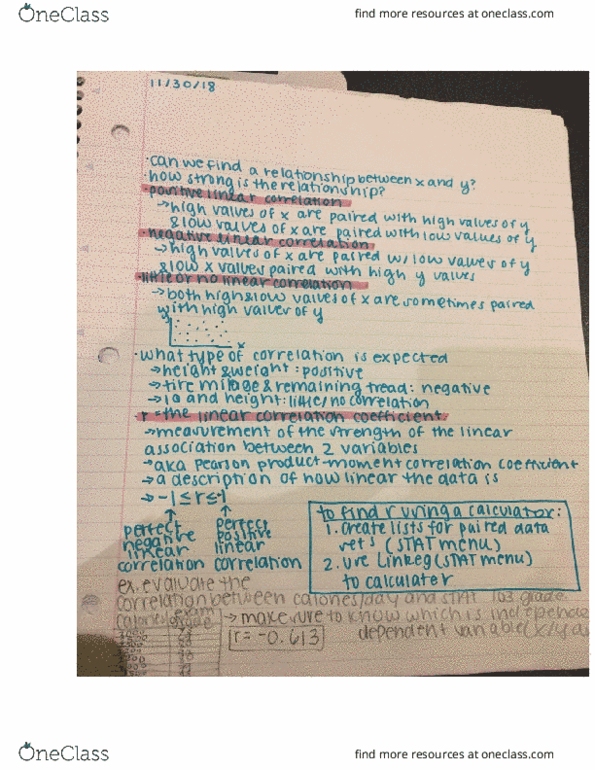 OneClass
find more resources at oneclass.com
11/30/18
·can we find a relationship between x and y?
·how strong is the relationship?
·positive linear correlation
→high values of x are paired with high values of y
&low values of x are paired with low values of y
·negative linear correlation
→high values of x are paired w/ low values of y
&low x values paired with high y values
·little or no linear correlation
→both high&low values of x are sometimes paired
with high values of y
x
·what type of correlation is expected
→height &weight: positive
→tire milage & remaining tread: negative
→IQ and height: little/no correlation
r = the linear correlation coefficient
→measurement of the strength of the linear
association between 2 variables
→aka Pearson product-moment correlation coefficient
→a description of how linear the data is
→ -1≤r≤1
↑ ↑
perfect negative linear correlation
perfect positive linear correlation
to find r using a calculator:
1. Create lists for paired data
sets (STAT menu)
2. use LinReg (STAT menu)
to calculater
ex. evaluate the
correlation between calories/day and STAT 103 grade.
exam
grade
→make sure to know which is independe
dependent variable (x/y a
r= -0.613
OneClass
find more resources at oneclass.com